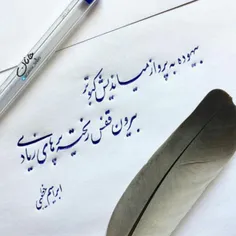 بیهوده به پرواز میندیش کبوتر
بیرون قفس ریخته پرهای زیادی
ابراهیم